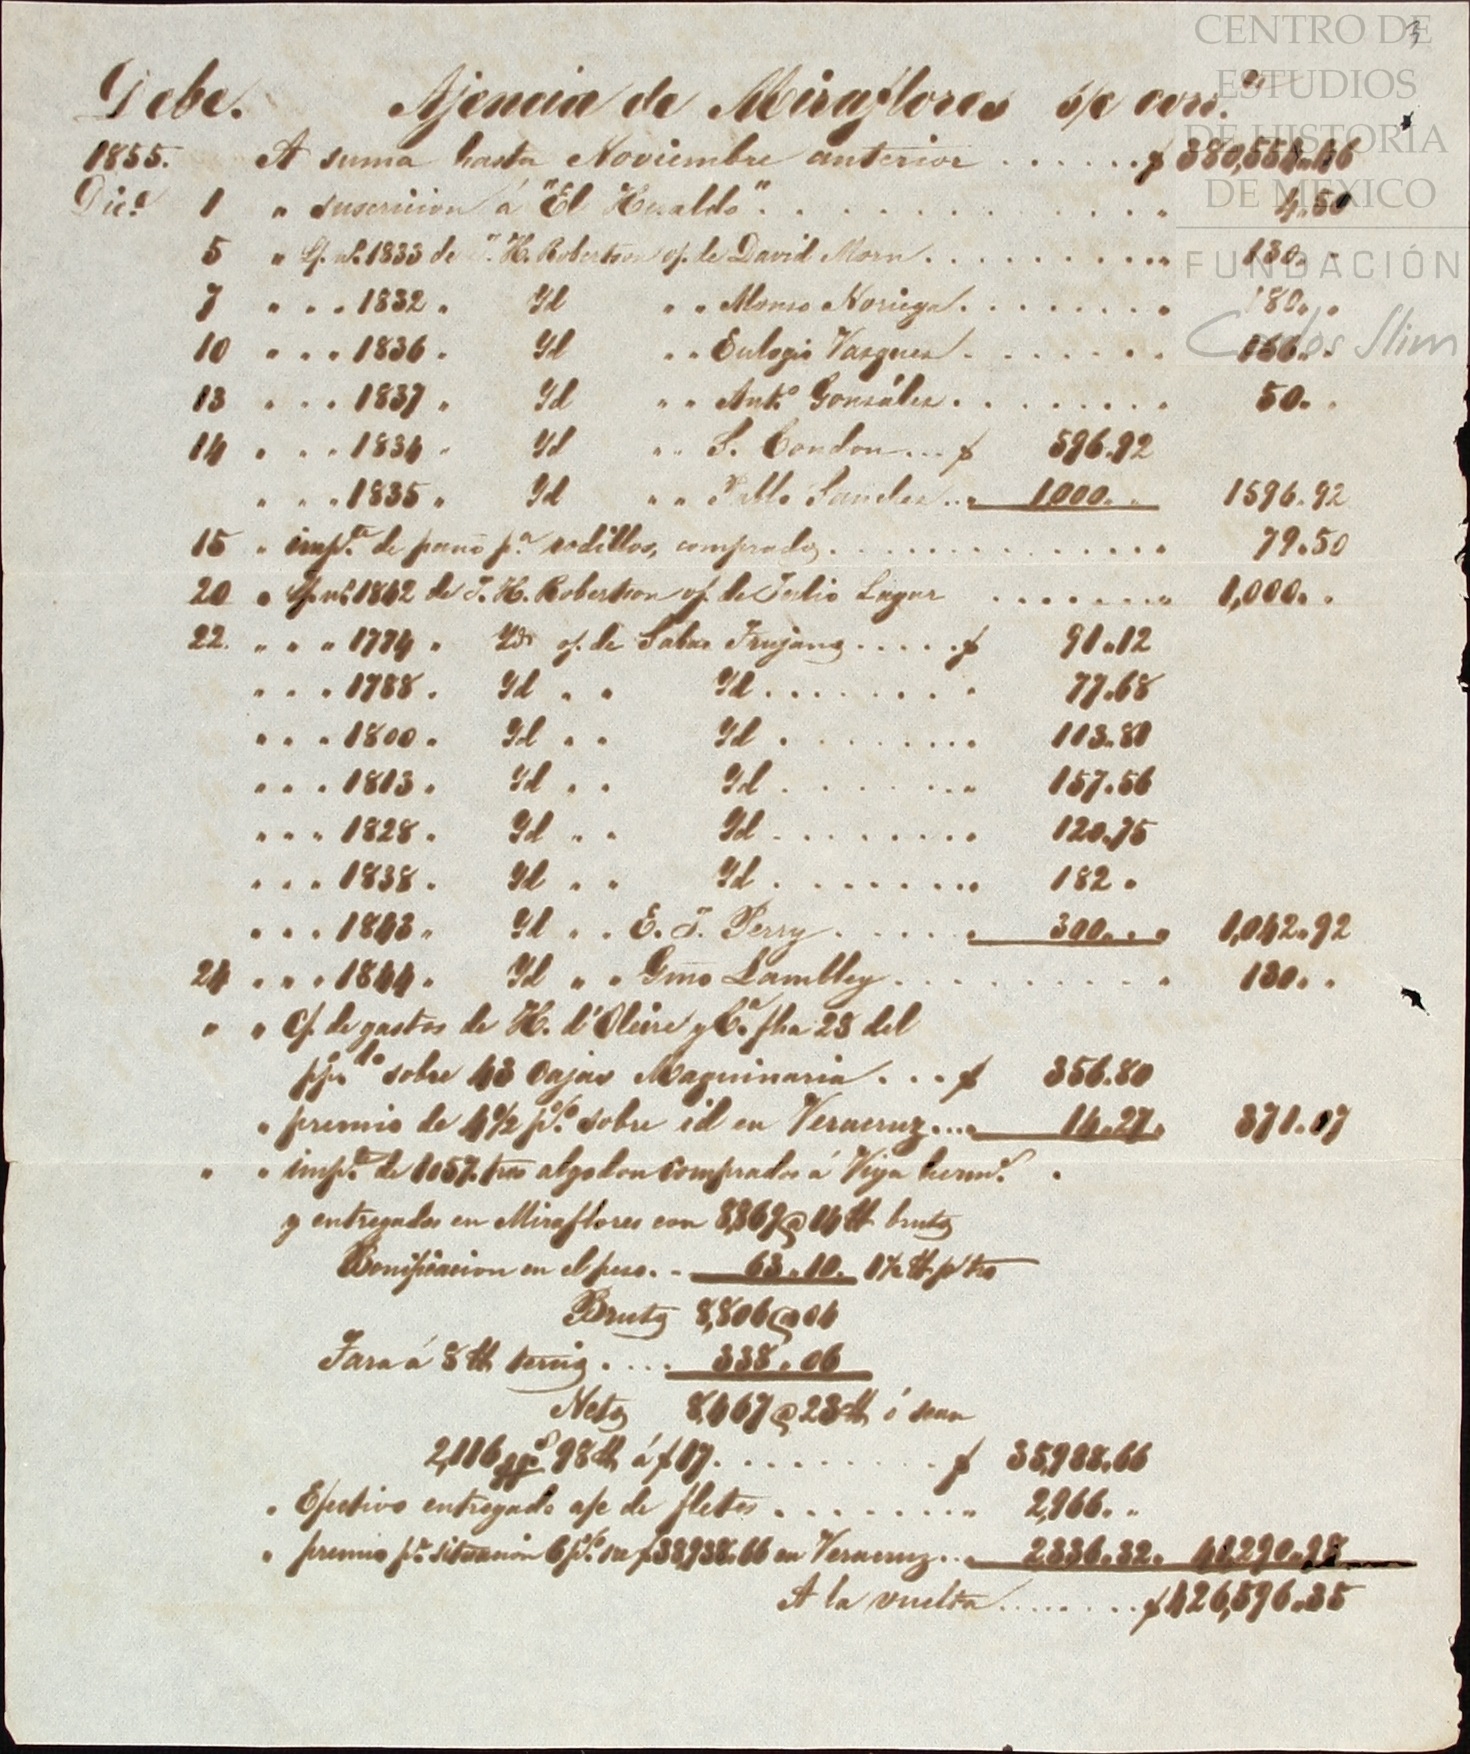 CENTRO DE
ESTUDIOS
DE HISTORIA
DE MÉXICO
FUNDACIÓN
Carlos Slim
3
Debe. Ajencia de Miraflores s/c corr.
1855. A suma hasta Noviembre anterior . . . . . . $
Dice. 1 " suscricion á "El Heraldo" . . . . . . . . " 4.50
5 " Lf. nº. 1833 de T. H. Robertson of. de David Morn . . . . . . . . " 130. .
7 " " " 1832 " Yd " " Alonso Noriega . . . . . . . . " 180. .
10 " " " 1836 " Yd " " Eulogio Vazquez . . . . . . "
13 " " " 1837 " Yd " " Antº. Gonsález . . . . . . . . " 50. .
14 " " " 1834 " Yd " " S. Condon . . . $ 596.92
" " " 1835 " Yd " " Pablo Sanchez . . " 1000. . 1596.92
15 " impte. de paño pa. rodillos, comprado . . . . . . . . . . . . . . " 79.50
20 " Lf. nº. 1842 de T. H. Robertson of. de Julio Lagar . . . . . . . " 1,000. .
22. " " " 1774 " Yd of. de Sabas Trujano . . . . . $ 91.12
" " " 1788 " Yd " " Yd . . . . . . . . " 77.68
" " " 1800 " Yd " " Yd . . . . . . . . " 113.81
" " " 1813 " Yd " " Yd . . . . . . . . " 157.56
" " " 1828 " Yd " " Yd . . . . . . . . " 120.75
" " " 1838 " Yd " " Yd . . . . . . . . " 182 .
" " " 1843 " Yd " " E. J. Perry . . . . . " 300. . " 1,042.92
24 " " " 1844 " Yd " " Gmo Lambley . . . . . . . . . . " 130. .
" " Cf. de gastos de H. d'Oleire y Ca. fha 23 del
ppdo. sobre 43 cajas Maquinaria . . . $ 356.80
" premio de 4 1/2 p%. sobre id en Veracruz . . . " 14.27. 371.07
" " impte. de 1057. tros algodon comprados á Viya herms. .
y entregados en Miraflores con 8,869@14 lb bruto
Bonificacion en el peso. . 63.10. 1 1/2 lb p. tro
Bruto 8,806@04
Tara á 8 lb tercio . . . . 338.06
Neto 8,467@23 lb ó sean
2,116 qqs. 98 lb á $17. . . . . . . . . . $ 35,988.66
" Efectivo entregado a/c de fletes . . . . . . . . " 2,966. .
" premio pr. situacion 6 p%. en $38938.66 en Veracruz . . " 2336.32. 41,290.98
A la vuelta . . . . . . . . $ 426,596.35